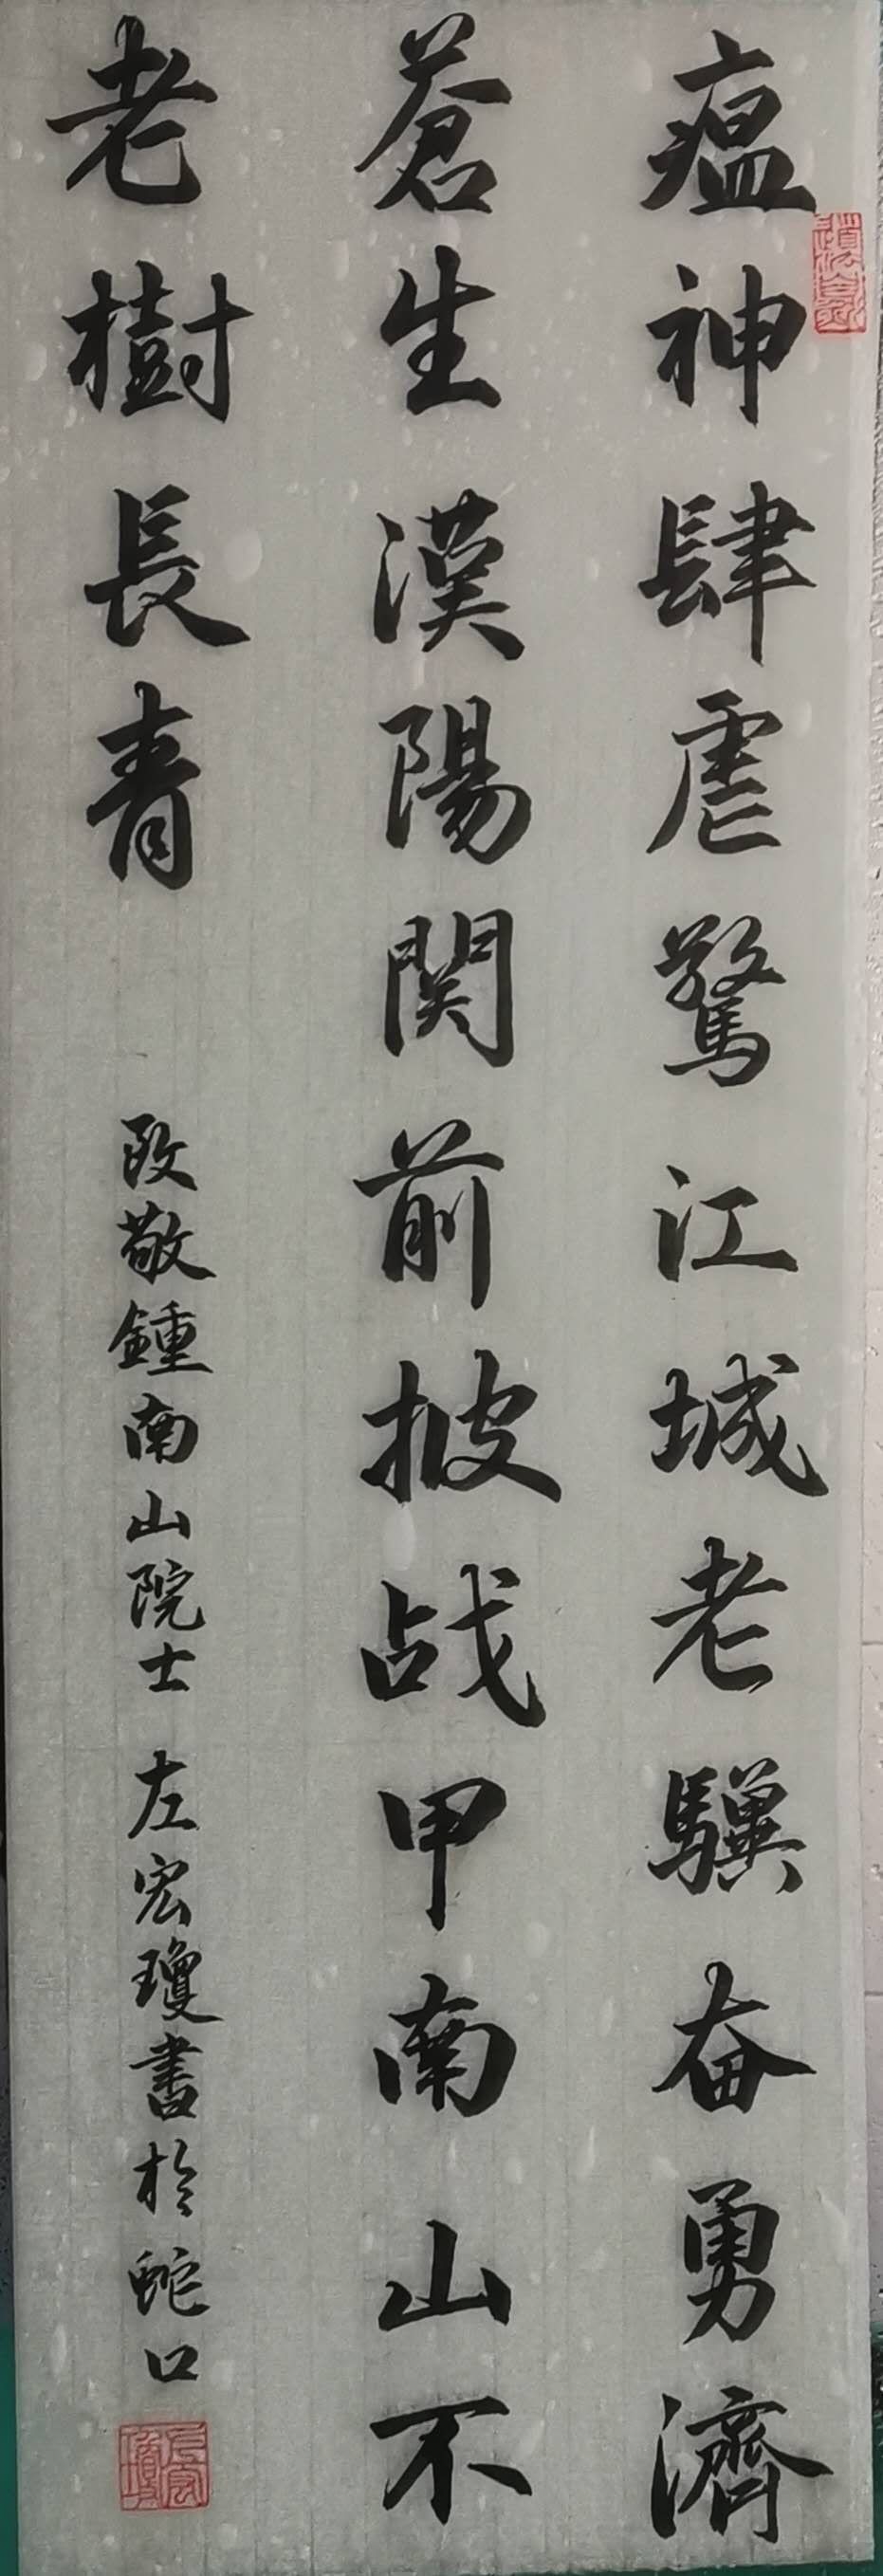 瘟神肆虐驚江城老驥奋勇濟
蒼生漢陽関前披战甲南山不
老樹長青
致敬鍾南山院士 左宏瓊書於蛇口